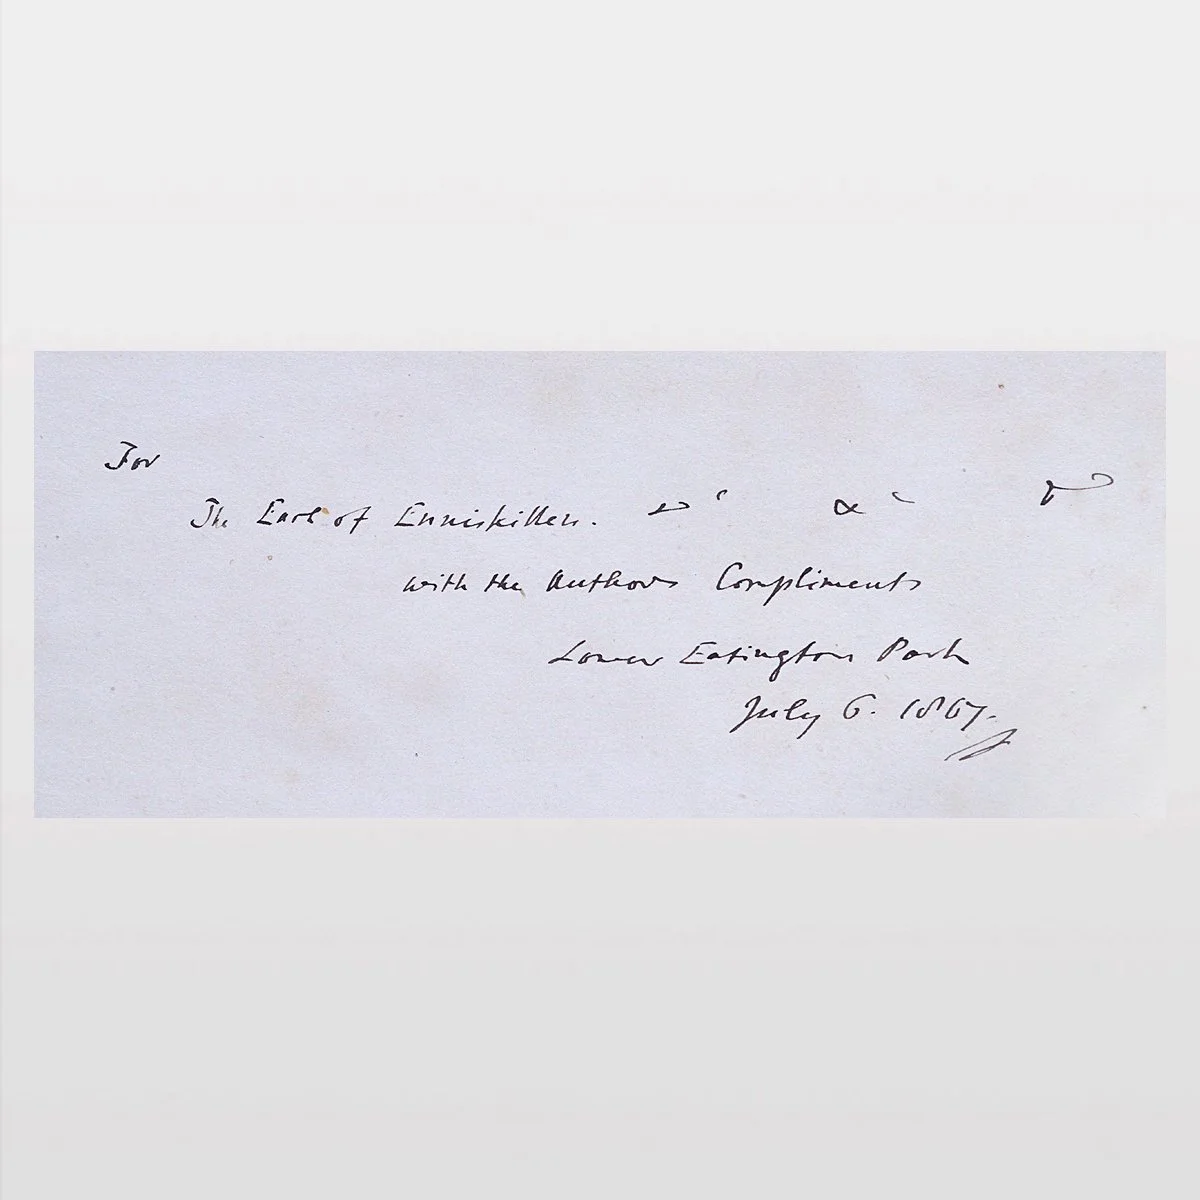 For
The Earl of Enniskillen. &c &c &c
with the Authors Compliments
Lower Eatington Park
July 6. 1867.